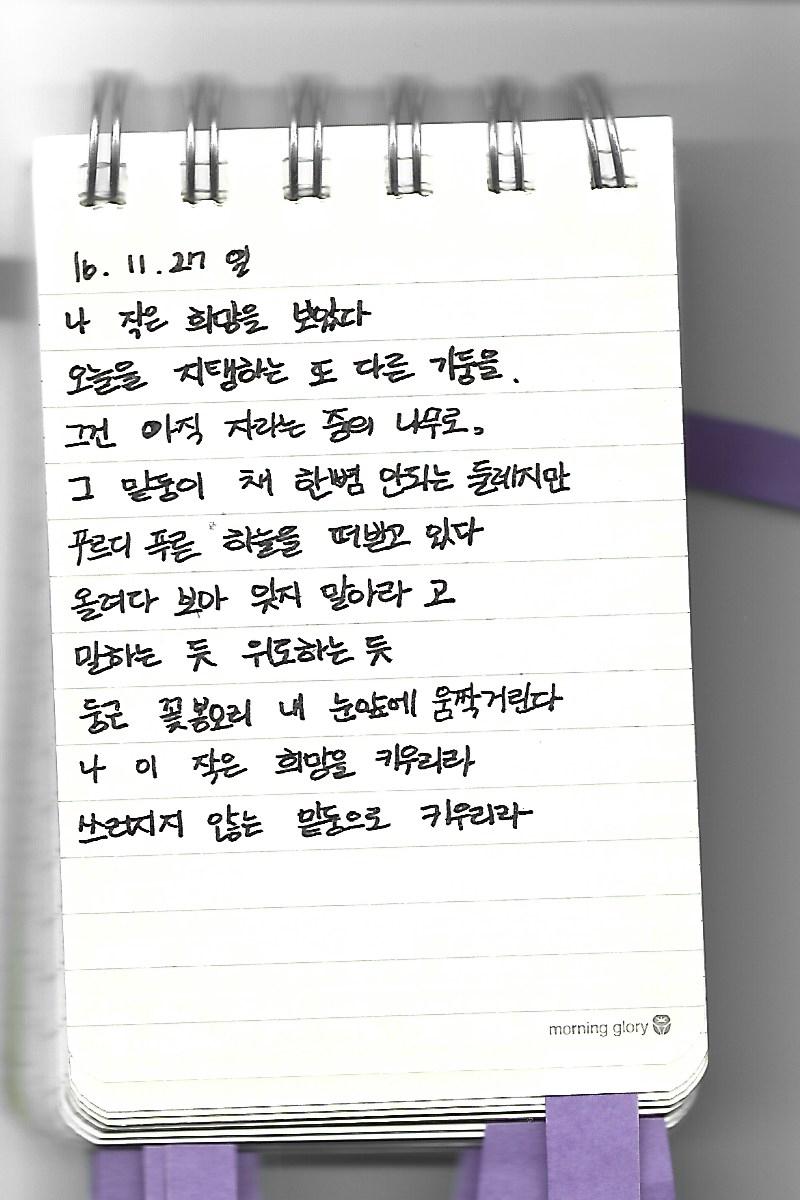 16. 11. 27 일
나 작은 희망을 보았다
오늘을 지탱하는 또 다른 기둥을.
그건 아직 자라는 중의 나무로.
그 밑동이 채 한뼘 안되는 둘레지만
푸르디 푸른 하늘을 떠받고 있다
올려다 보아 잊지 말아라 고
말하는 듯 위로하는 듯
둥근 꽃봉오리 내 눈앞에 움짝거린다
나 이 작은 희망을 키우리라
쓰러지지 않는 밑동으로 키우리라
morning glory